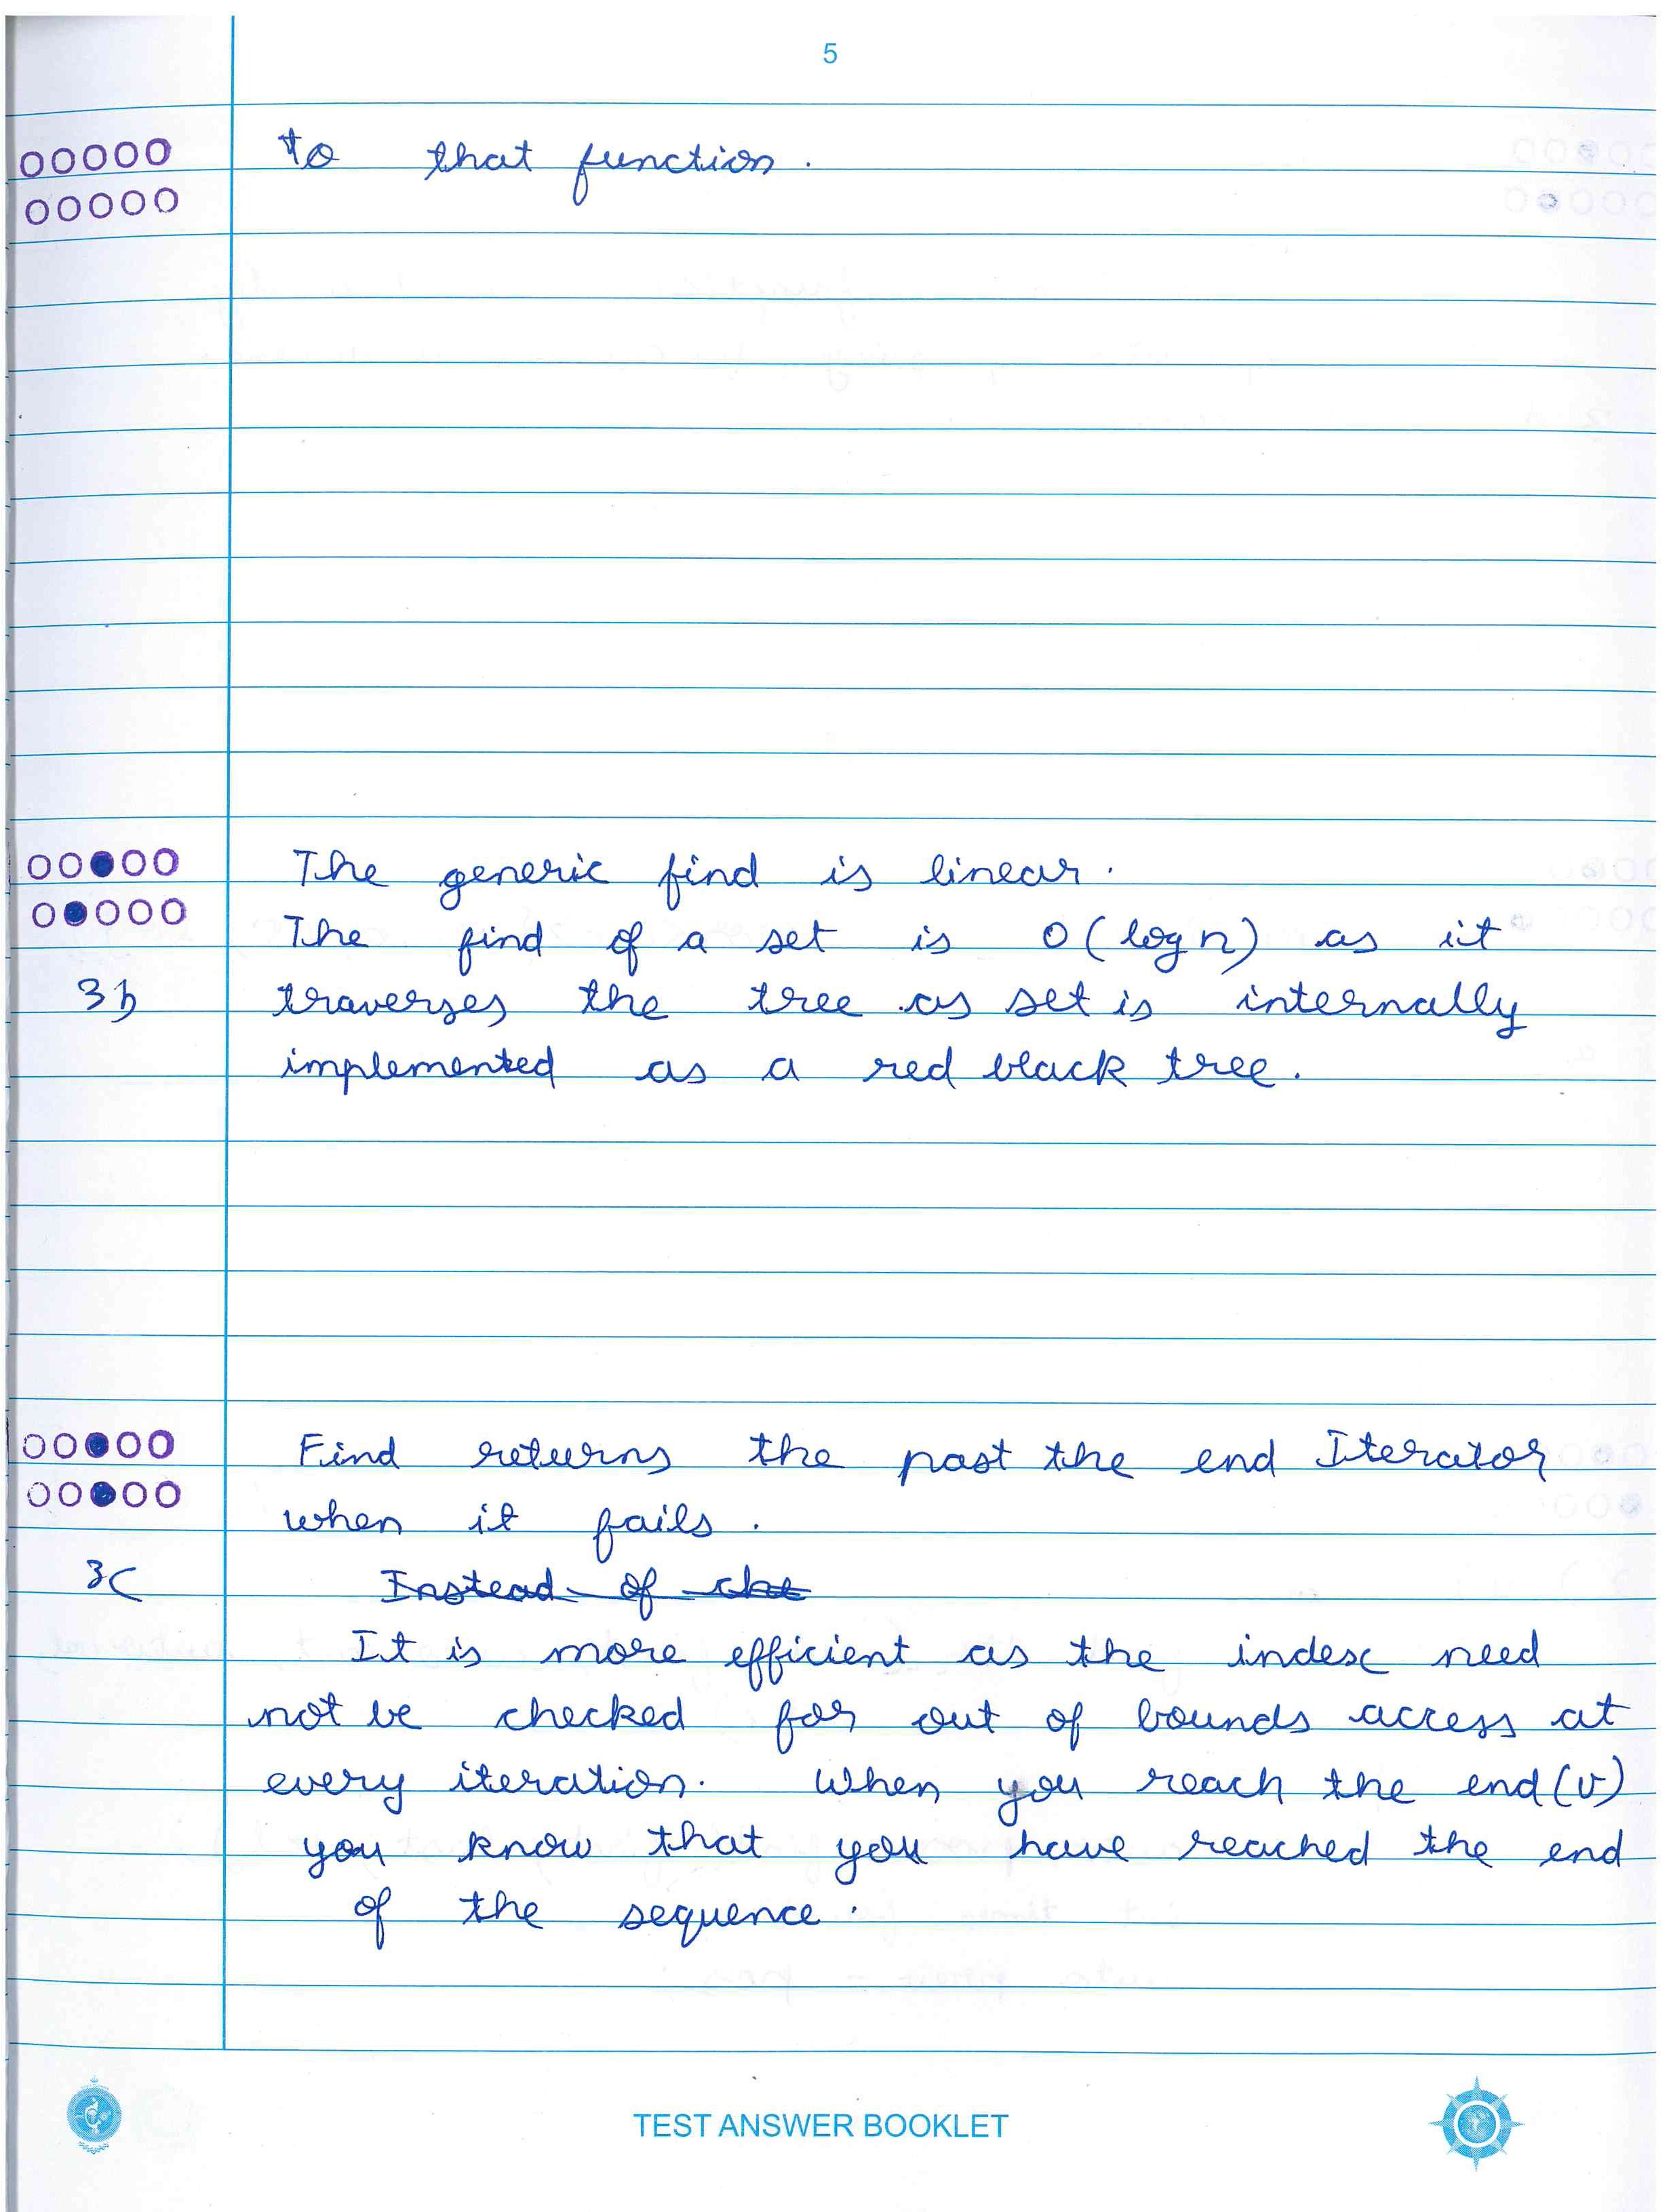 5
to that function.
The generic find is linear.
The find of a set is O(log n) as it
3b traverses the tree as set is internally
implemented as a red black tree.
Find returns the past the end Iterator
when it fails.
3c Instead of
It is more efficient as the index need
not be checked for out of bounds access at
every iteration. When you reach the end(v)
you know that you have reached the end
of the sequence.
TEST ANSWER BOOKLET